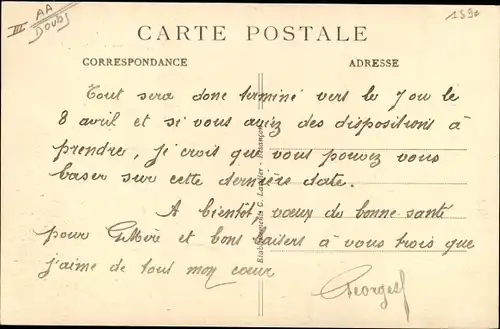 III AA
Doubs
159e
CARTE POSTALE
CORRESPONDANCE
ADRESSE
Tout sera donc terminé vers le 7 ou le
8 avril et si vous aviez des dispositions à
prendre, je crois que vous pouvez vous
baser sur cette dernière date.
A bientôt, vœux de bonne santé
pour G Mère et bons baisers à vous trois que
j'aime de tout mon cœur
Georges
Etablissements C. Lardier - Besançon